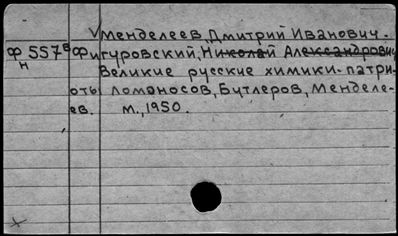 Vменделеев, Дмитрий Иванович.
Ф 557в Фигуровский, Николай Александрович
н Великие русские химики-патри-
оты Ломоносов, Бутлеров, Менделе-
ев. М., 1950.